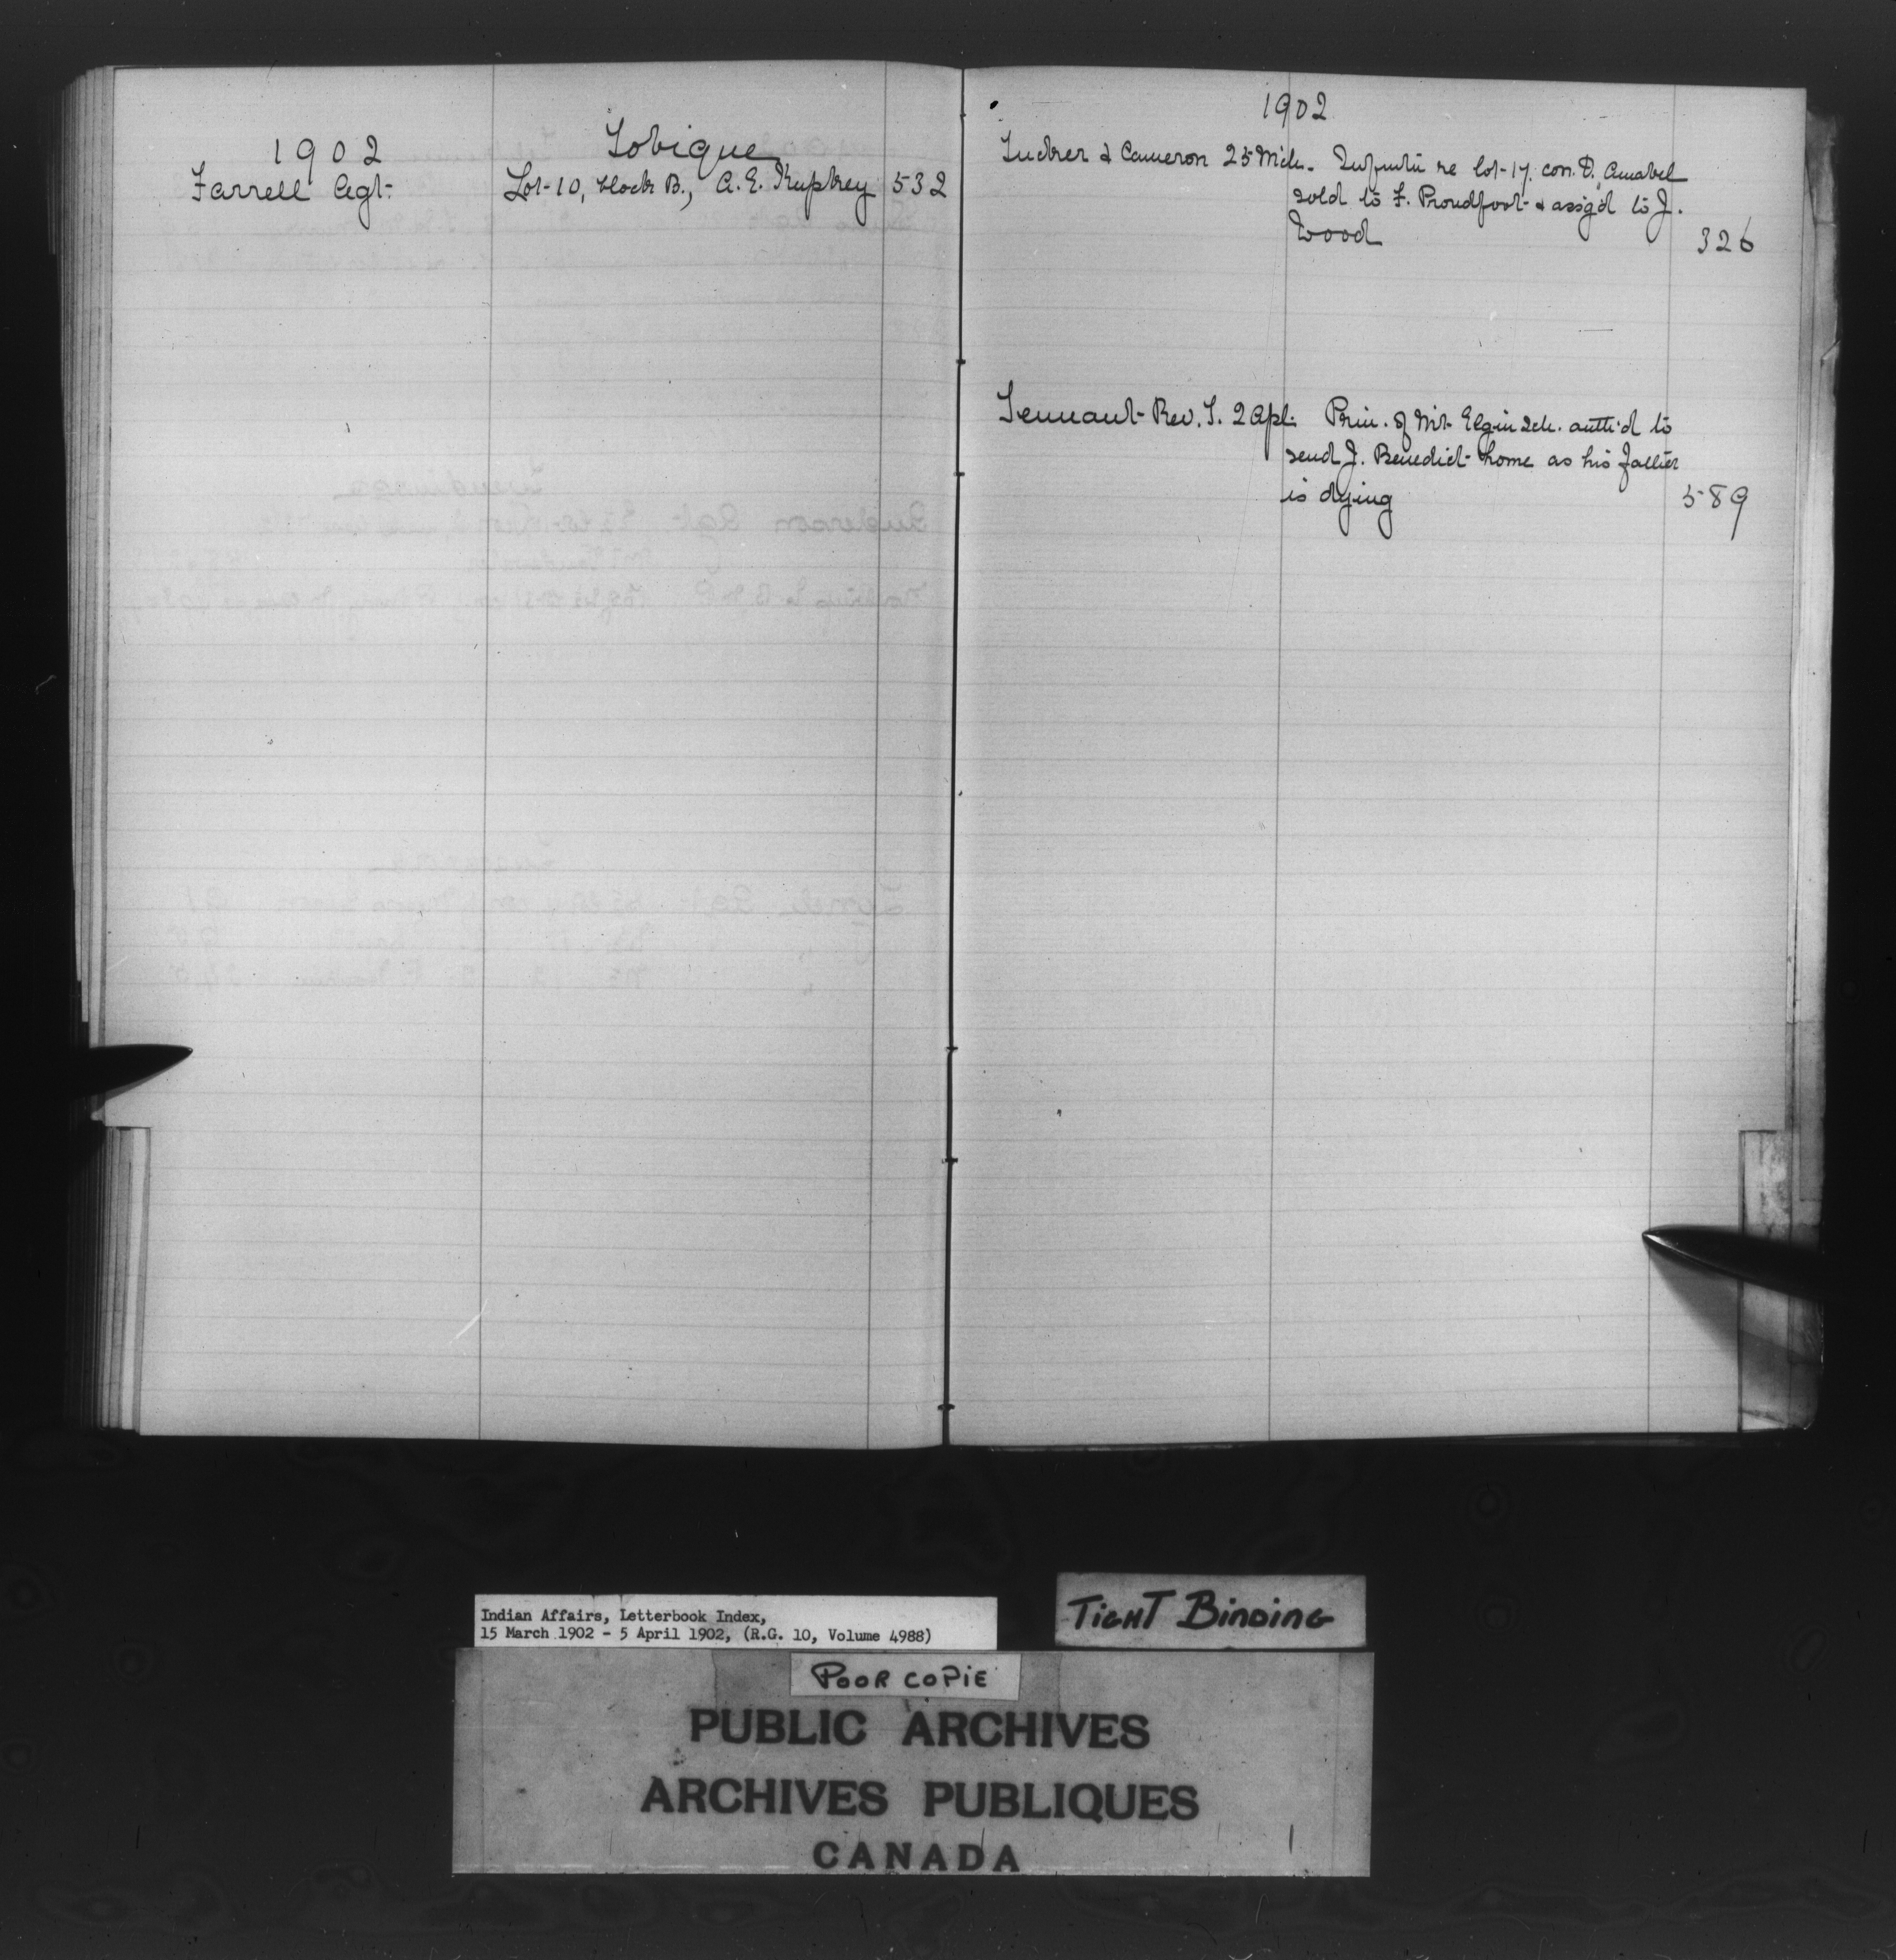 1902
Tobique
Farrell Agt. Lot 10, block B., A. E. Kupkey 532
1902
Tucker & Cameron 25 Mch. Informtn re lot 17. con. D, Amabel
sold to F. Proudfoot & assig'd to J.
Wood 326
Tennant Rev. T. 2 Apl. Prin. of Mt. Elgin Sch. auth'd to
send J. Benedict home as his father
is dying 589
Indian Affairs, Letterbook Index,
15 March 1902 - 5 April 1902, (R.G. 10, Volume 4988)
TIGHT BINDING
POOR COPIE
PUBLIC ARCHIVES
ARCHIVES PUBLIQUES
CANADA